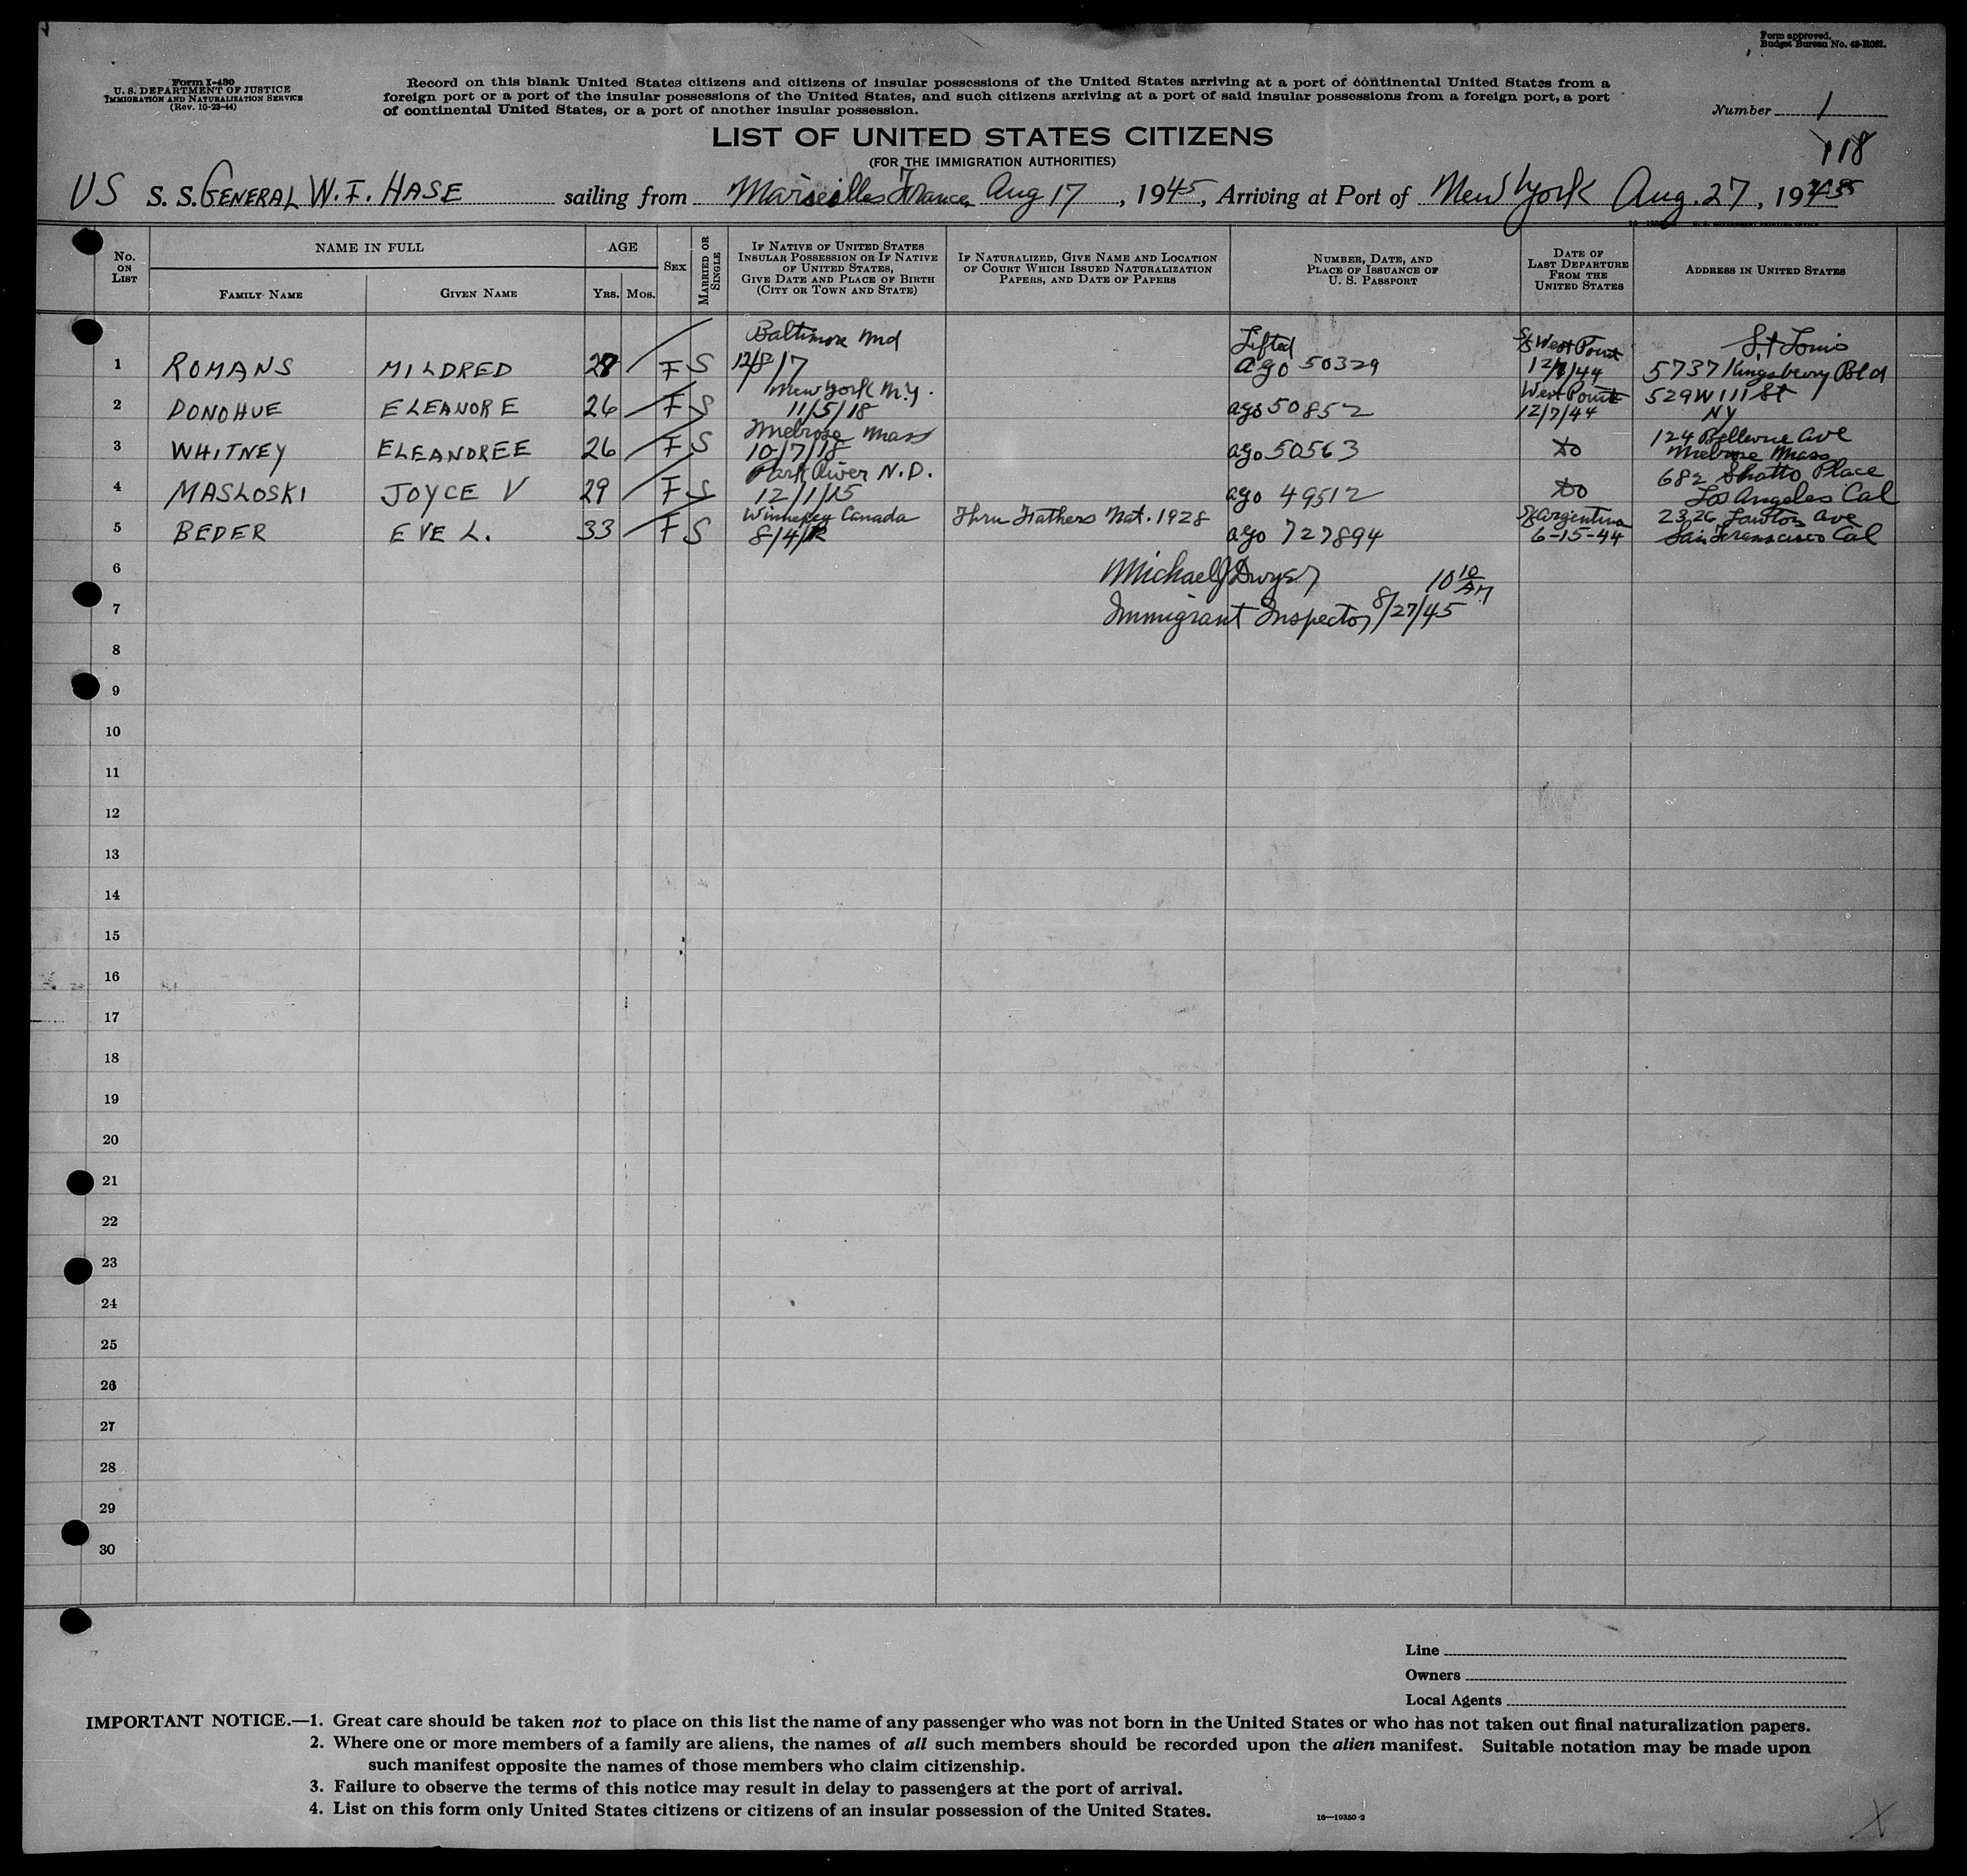 Form approved.
Budget Bureau No. 43-R081.
Form I-430
U. S. DEPARTMENT OF JUSTICE
IMMIGRATION AND NATURALIZATION SERVICE
(Rev. 10-23-44)
Record on this blank United States citizens and citizens of insular possessions of the United States arriving at a port of continental United States from a
foreign port or a port of the insular possessions of the United States, and such citizens arriving at a port of said insular possessions from a foreign port, a port
of continental United States, or a port of another insular possession.
Number 1
LIST OF UNITED STATES CITIZENS
(FOR THE IMMIGRATION AUTHORITIES)
118
US S. S. GENERAL W. F. HASE sailing from Marseilles France Aug 17, 1945, Arriving at Port of New York Aug. 27, 1945
No. ON LIST
NAME IN FULL
FAMILY NAME
GIVEN NAME
AGE
YRS. MOS.
SEX
MARRIED OR SINGLE
IF NATIVE OF UNITED STATES
INSULAR POSSESSION OR IF NATIVE
OF UNITED STATES,
GIVE DATE AND PLACE OF BIRTH
(CITY OR TOWN AND STATE)
IF NATURALIZED, GIVE NAME AND LOCATION
OF COURT WHICH ISSUED NATURALIZATION
PAPERS, AND DATE OF PAPERS
NUMBER, DATE, AND
PLACE OF ISSUANCE OF
U. S. PASSPORT
DATE OF
LAST DEPARTURE
FROM THE
UNITED STATES
ADDRESS IN UNITED STATES
Baltimore Md Lifted West Point St Louis
1 ROMANS MILDRED 28 F S 12/8/17 ago 50329 12/7/44 5737 Kingsberry Bld
New York N.Y. West Point 529 W 111 St
2 DONOHUE ELEANORE 26 F S 11/5/18 ago 50852 12/7/44 NY
Melrose Mass 124 Bellevue Ave
3 WHITNEY ELEANDREE 26 F S 10/7/18 ago 50563 Do Melrose Mass
Park River N.D. 682 Shatto Place
4 MASLOSKI JOYCE V 29 F S 12/1/15 ago 49512 Do Los Angeles Cal
Winnepeg Canada Thru Fathers Nat. 1928 Argentina 2326 Lawton Ave
5 BEDER EVE L. 33 F S 8/4/12 ago 727894 6-15-44 San Franscisco Cal
6 Michael J Dwyer 10 10 AM
7 Immigrant Inspector 8/27/45
8
9
10
11
12
13
14
15
16
17
18
19
20
21
22
23
24
25
26
27
28
29
30
Line
Owners
Local Agents
IMPORTANT NOTICE.—1. Great care should be taken not to place on this list the name of any passenger who was not born in the United States or who has not taken out final naturalization papers.
2. Where one or more members of a family are aliens, the names of all such members should be recorded upon the alien manifest. Suitable notation may be made upon
such manifest opposite the names of those members who claim citizenship.
3. Failure to observe the terms of this notice may result in delay to passengers at the port of arrival.
4. List on this form only United States citizens or citizens of an insular possession of the United States.
16—19350-2
X